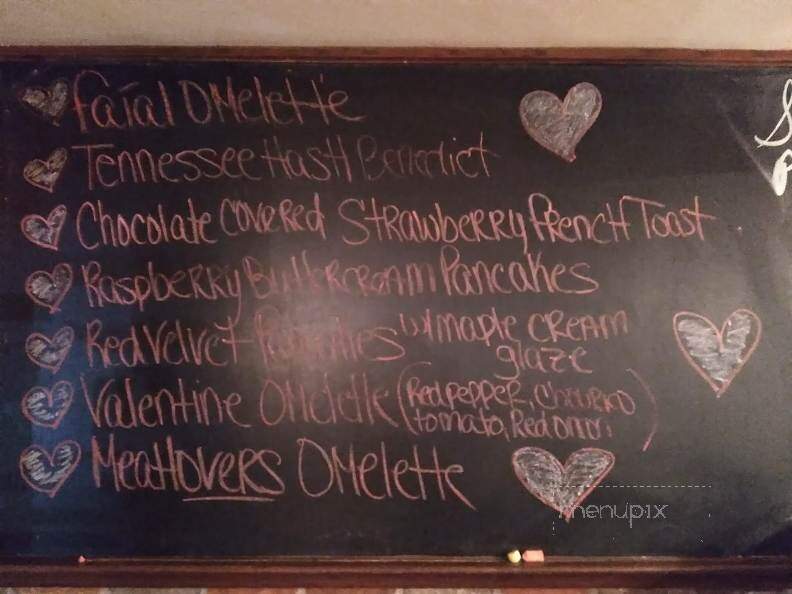 Faial OMelette
Tennessee HasH Benedict
Chocolate covered Strawberry French Toast
Raspberry Buttercream Pancakes
Red Velvet Pancakes w/ maple cream
glaze
Valentine OMelette (Red pepper, Chourico
tomato, Red onion)
Meatlovers OMelette
menupix